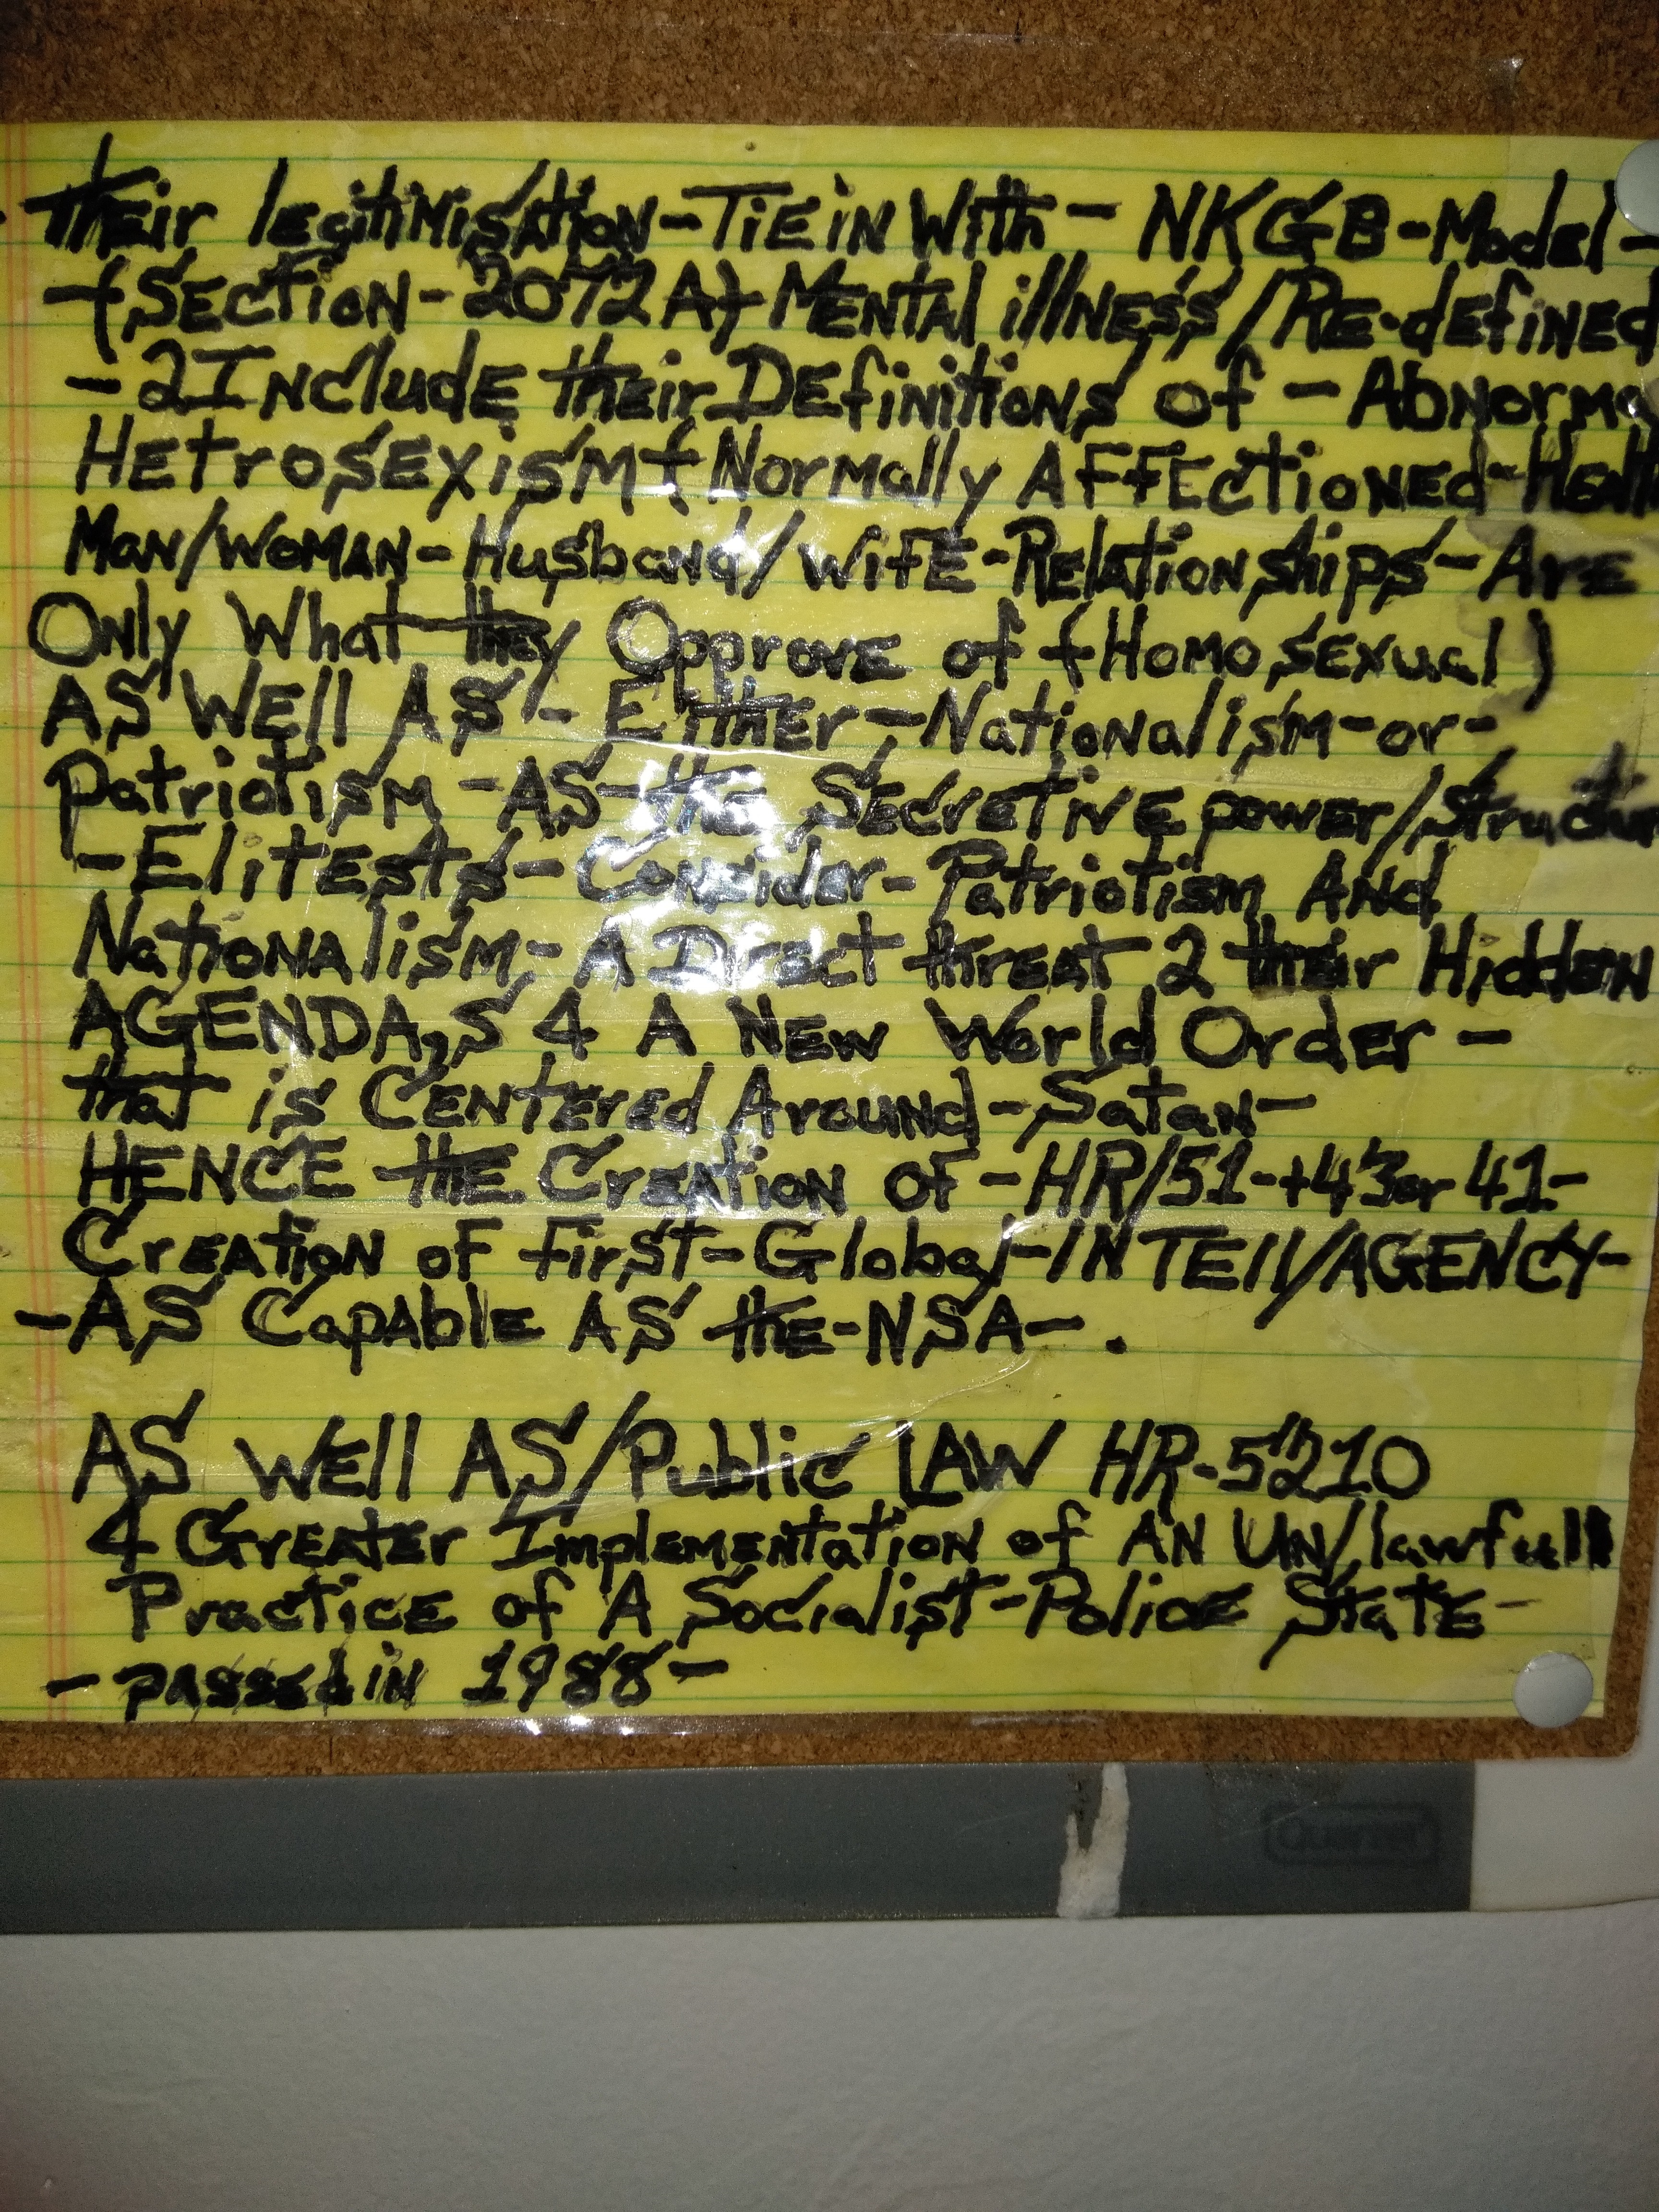 - their legitimisation-Tie in With- NKGB-Model-
-{Section-2072A} Mental illness/Re-defined
-2 Include their Definitions of -Abnorma
Hetrosexism-{Normally Affectioned-Healt
Man/Woman-Husband/wife-Relationships-Are
Only What they Opprove of {Homosexual)
AS Well AS'- Either-Nationalism-or-
Patriotism-AS the Secretive power/Structur
-Elitests-Consider-Patriotism And
Nationalism,- A Direct threat 2 their Hidden
AGENDA,S 4 A New World Order -
that is Centered Around-Satan-
HENCE the Creation of -HR/51-+43or 41-
Creation of first-Global-INTEll/AGENCY-
-AS Capable AS the-NSA-.
AS Well AS/Public LAW HR-5210
4 Greater Implementation of AN UN/lawfull
Practice of A Socialist-Police State-
-passed in 1988-